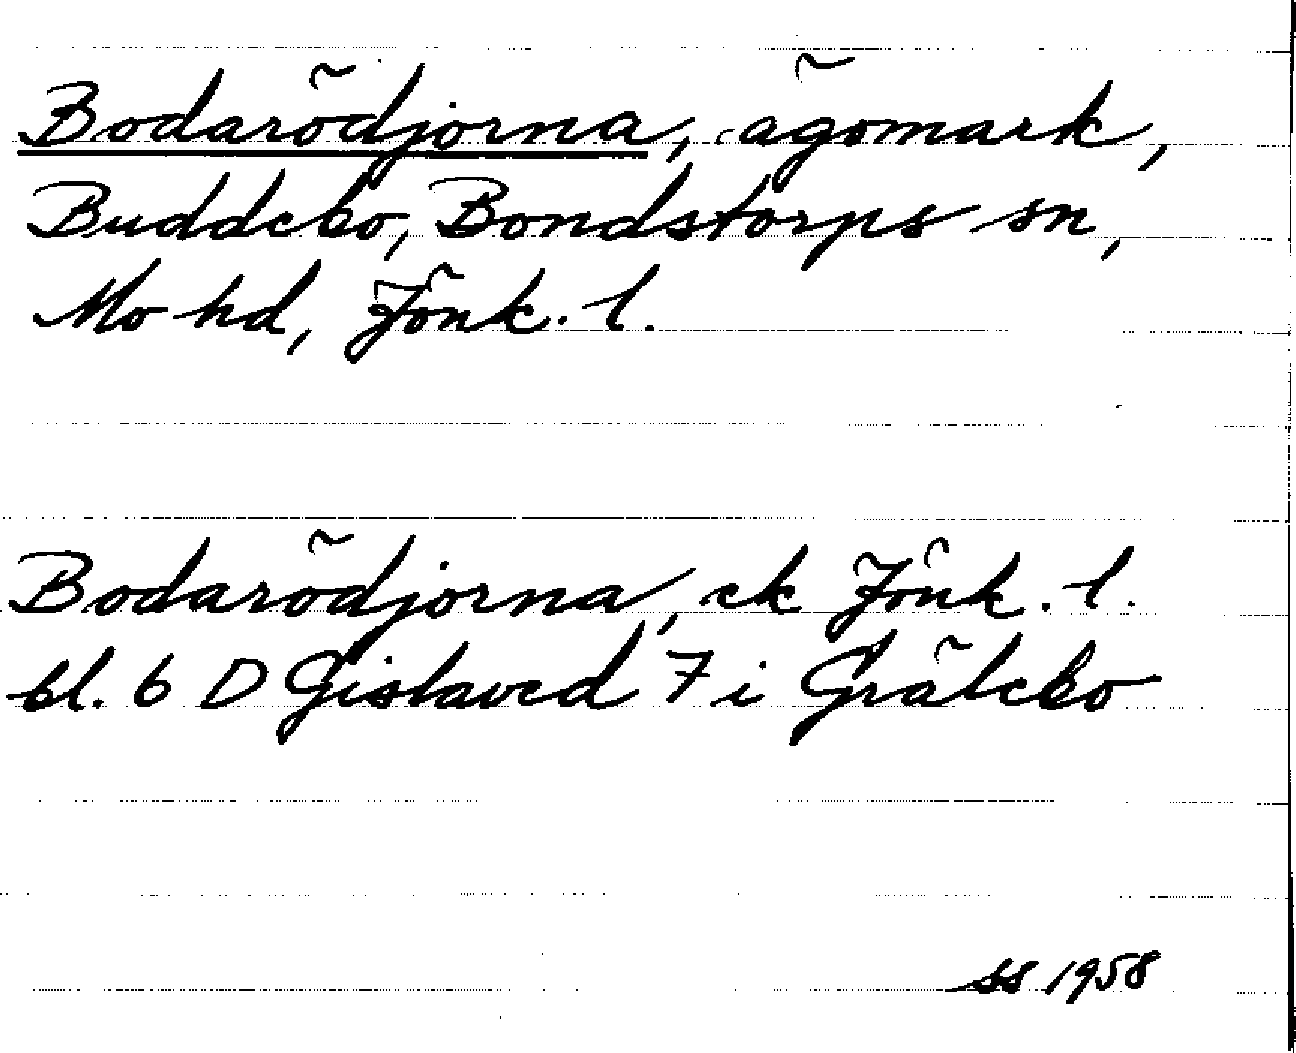 Bodarödjorna, ägomark,
Buddebo, Bondstorps sn,
Mo hd, Jönk. l.
Bodarödjorna, ek Jönk. l.
bl. 6 D Gislaved 7 i Grälebo
SS 1958